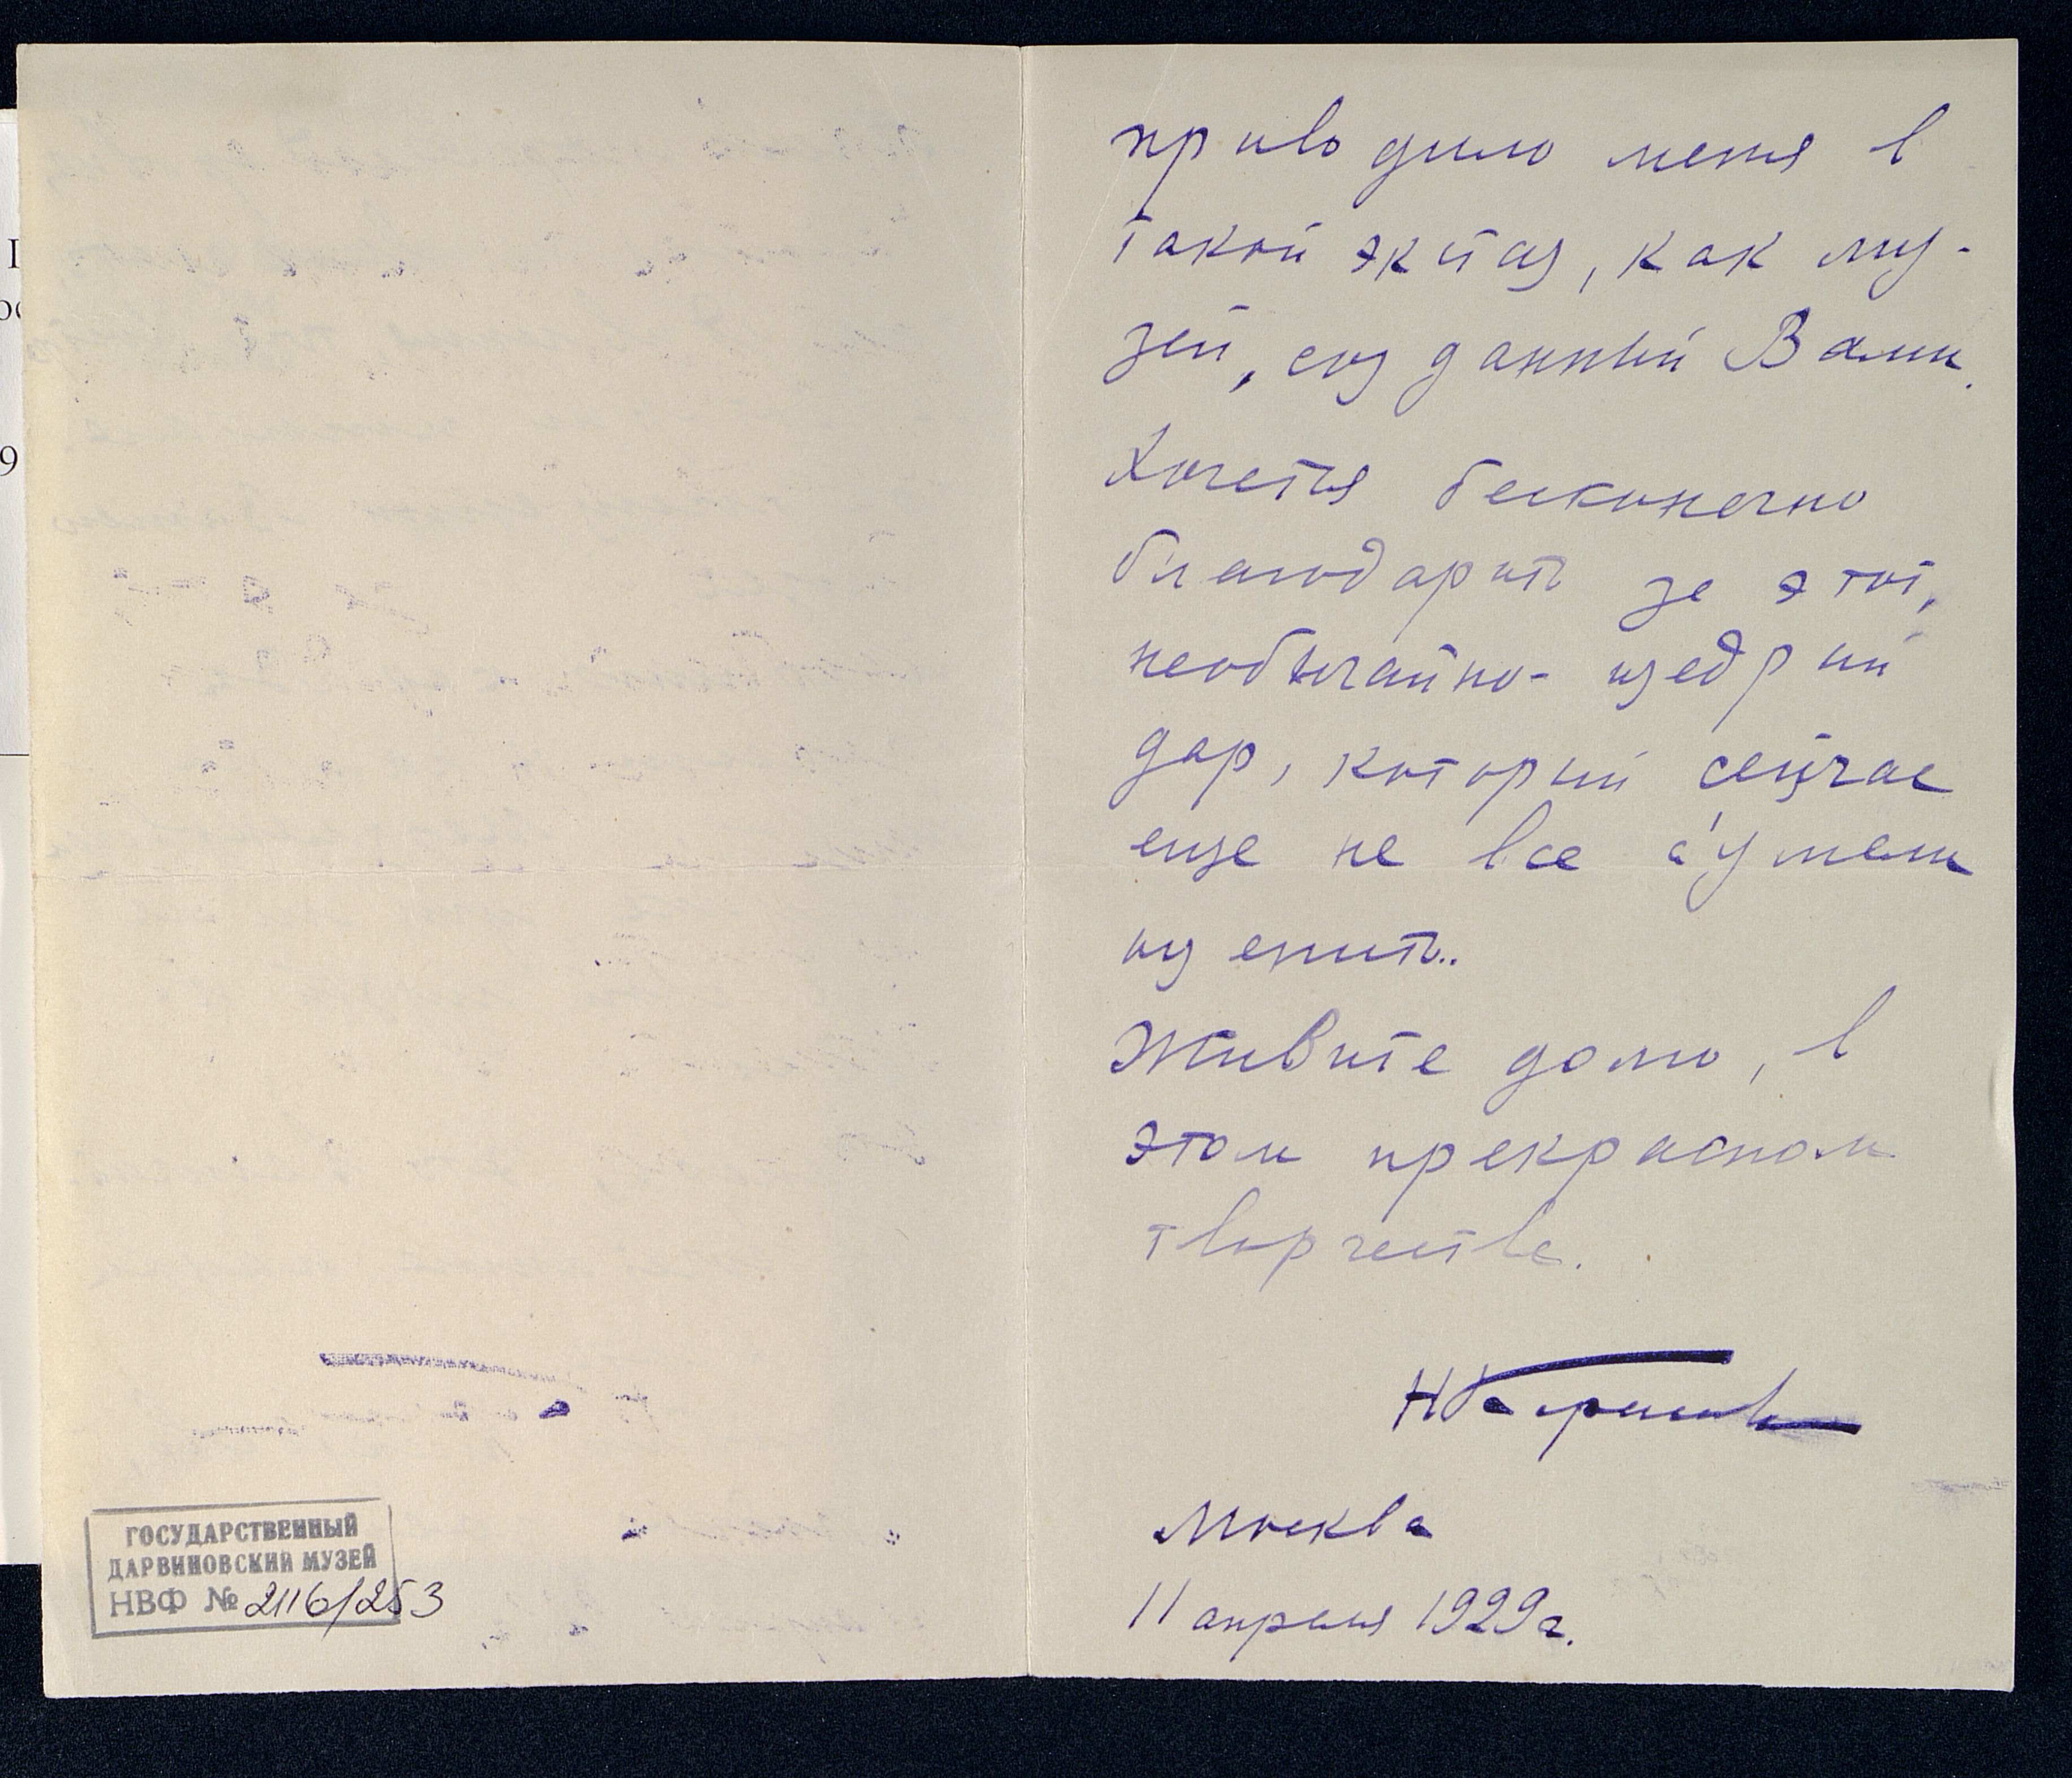 приводило меня в
такой экстаз, как му-
зей, созданный Вами.
Хочется бесконечно
благодарить за этот,
необычайно-щедрый
дар, который сейчас
еще не все сумели
оценить..
Живите долго, в
этом прекрасном
творчестве.
Москва
11 апреля 1929 г.
ГОСУДАРСТВЕННЫЙ
ДАРВИНОВСКИЙ МУЗЕЙ
НВФ № 2116/253